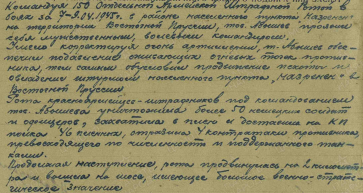 Командуя 150 Отдельной Армейской Штрафной ротой в
боях за 7-9.2.1945г. в районе населенного пункта Мазренен
на территории Восточной Пруссии, тов. Авшиев проявил
себя мужественным, волевым командиром.
Умело корректируя огонь артиллерии, тов. Авшиев обес-
печил подавление огневых точек против-
ника, тем самым обеспечив продвижение пехоты и
овладение штурмом населенного пункта Мазренен в
Восточной Пруссии
Рота красноармейцев-штрафников под командованием
тов. Авшиева уничтожила более 50 немецких солдат
и офицеров, захватила в плен и доставила на КП
полка 46 пленных, отразила 4 контратаки противника,
превосходящего по численности и поддержанного тан-
ками.
Продолжая наступление, рота продвинулась на 2 километ-
ра и вышла на шоссе, имеющее большое военно-страте-
гическое значение